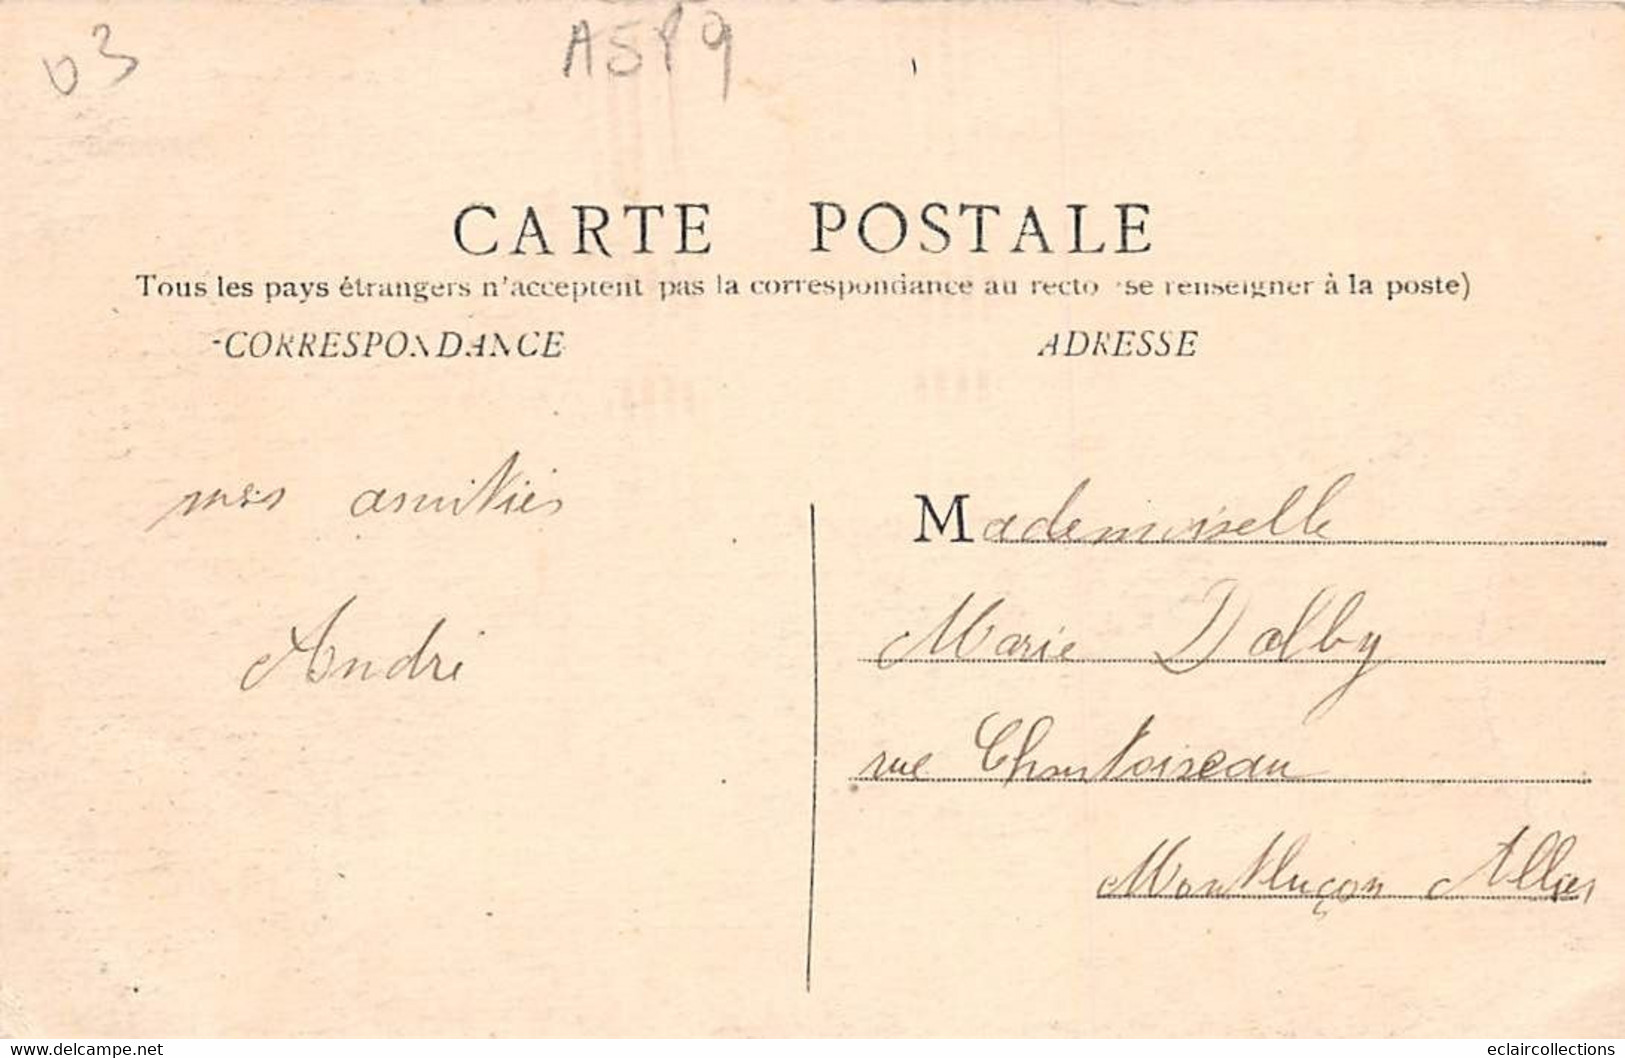 03
A5P9
CARTE POSTALE
Tous les pays étrangers n'acceptent pas la correspondance au recto (se renseigner à la poste)
CORRESPONDANCE
ADRESSE
mes amitiés
André
Mademoiselle
Marie Dalby
rue Chantoiseau
Montluçon Allier
www.delcampe.net
eclaircollections